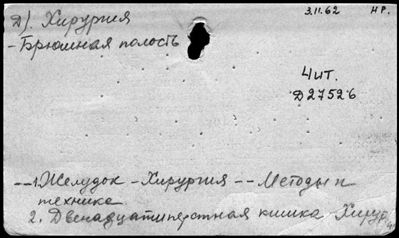 Д) Хирургия
3.11.62 НР.
- Брюшная полость
Чит.
D27526
-- 1. Желудок - Хирургия -- Методы и
техника
2. Двенадцатиперстная кишка Хирур